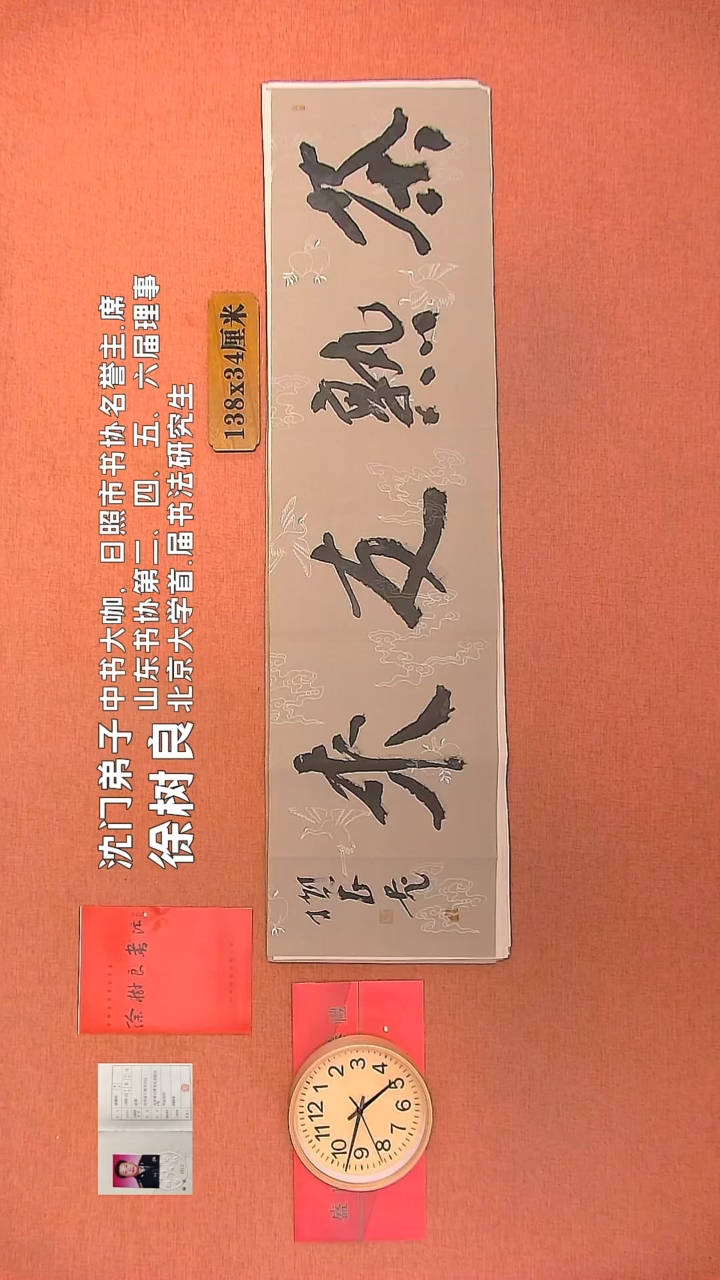 沈门弟子 中书大咖，日照市书协名誉主.席
山东书协第二、四、五、六届理事
徐树良 北京大学首.届书法研究生
138x34厘米
茶熟友来
樹良
徐樹良書法
盛
12
1
2
3
4
5
6
7
8
9
10
11